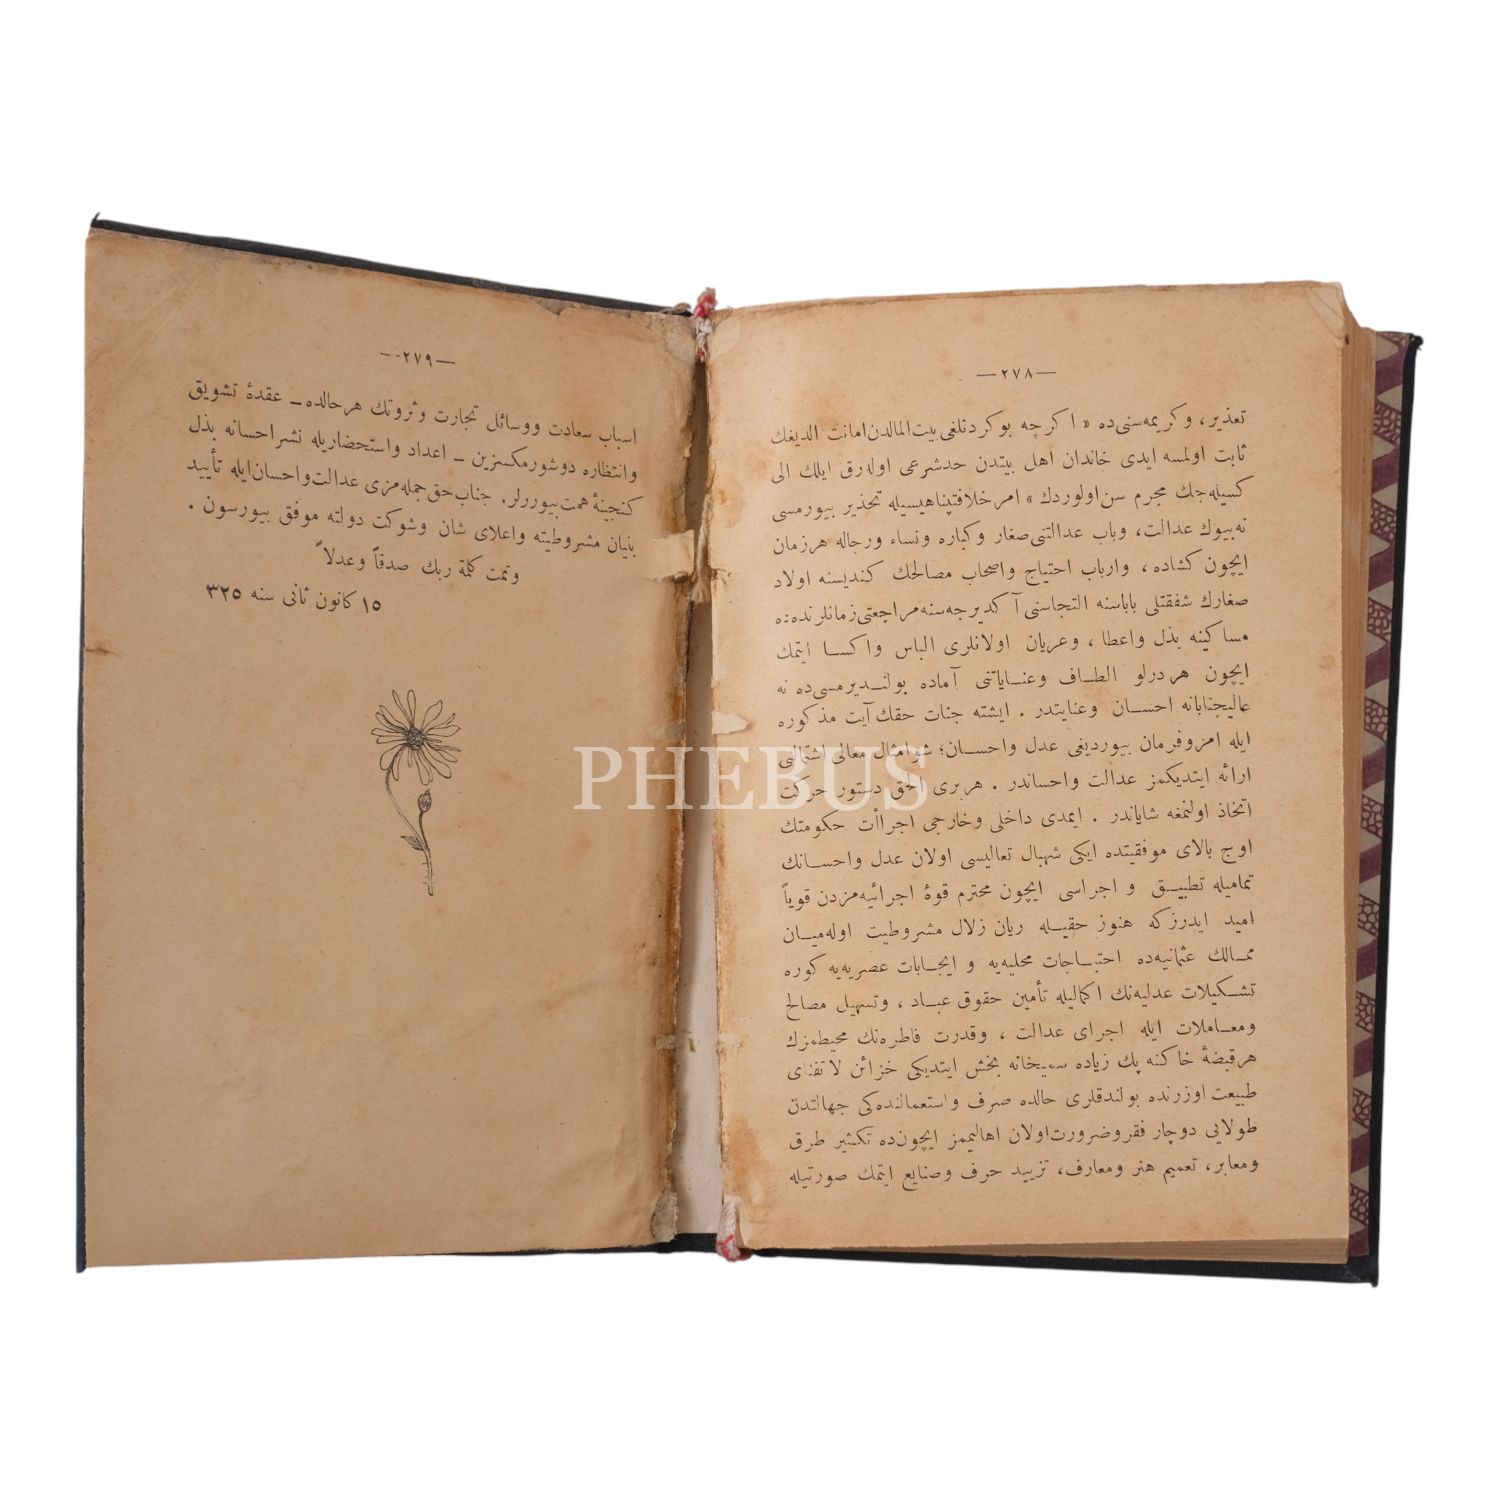 —٢٧٨—
تعذير، و كريمه‌سنی‌ده « ا كرچه بوكردنلغی بيت‌المالدن امانت الديغك
ثابت اولمسه ايدی خاندان اهل بيتدن حدشرعی اوله‌رق ايلك الی
كسيله‌جك مجرم سن اولوردك » امر خلافتپناهيسيله تحذير بيورمسی
نه‌بيوك عدالت، وباب عدالتنی صغار وكباره ونساء ورجاله هرزمان
ايچون كشاده ، وارباب احتياج واصحاب مصالحك كنديسنه اولاد
صغارك شفقتلی باباسنه التجاسنی آ كديرجه‌سنه مراجعتی زمانلرنده‌ده
مسا كينه بذل واعطا ، وعريان اولانلری الباس واكسا ايتمك
ايچون هردرلو الطاف وعناياتنی آماده بولنديرمسی‌ده نه
عاليجنابانه احسان وعنايتدر . ايشته جنات حقك آيت مذكوره
ايله امروفرمان بيورديغی عدل واحسان؛ شوامثال معالی اشتمالی
ارائه ايتديكمز عدالت واحساندر . هربری الحق دستور حركت
اتخاذ اولنمغه شاياندر . ايمدی داخلی وخارجی اجراأت حكومتك
اوج بالای موفقيتده ايكی شهبال تعاليسی اولان عدل واحسانك
تماميله تطبيق و اجراسی ايچون محترم قوۀ اجرائيه‌مزدن قوياً
اميد ايدرزكه هنوز حقيله ريان زلال مشروطيت اوله‌ميان
ممالك عثمانيه‌ده احتياجات محليه‌يه و ايجابات عصريه‌يه كوره
تشكيلات عدليه‌نك اكماليله تأمين حقوق عباد ، وتسهيل مصالح
ومعاملات ايله اجرای عدالت ، وقدرت فاطره‌نك محيطمزك
هرقبضۀ خاكنه پك زياده سميخانه بخش ايتديكی خزائن لاتفنای
طبيعت اوزرنده بولندقلری حالده صرف واستعمالنده‌كی جهالتدن
طولايی دوچار فقروضرورت‌اولان اهاليمز ايچون‌ده تكثير طرق
ومعابر، تعميم هنر ومعارف، تزييد حرف وصنايع ايتمك صورتيله
—٢٧٩—
اسباب سعادت ووسائل تجارت وثروتك هرحالده ـ عقدۀ تشويق
وانتظاره دوشورمكسزين ـ اعداد واستحضاريله نشراحسانه بذل
كنجينۀ همت بيوررلر. جناب حق جمله‌مزی عدالت واحسان ايله تأييد
بنيان مشروطيته واعلای شان وشوكت دولته موفق بيورسون .
وتمت كلمة ربك صدقاً وعدلاً
١٥ كانون ثانی سنه ٣٢٥
PHEBUS